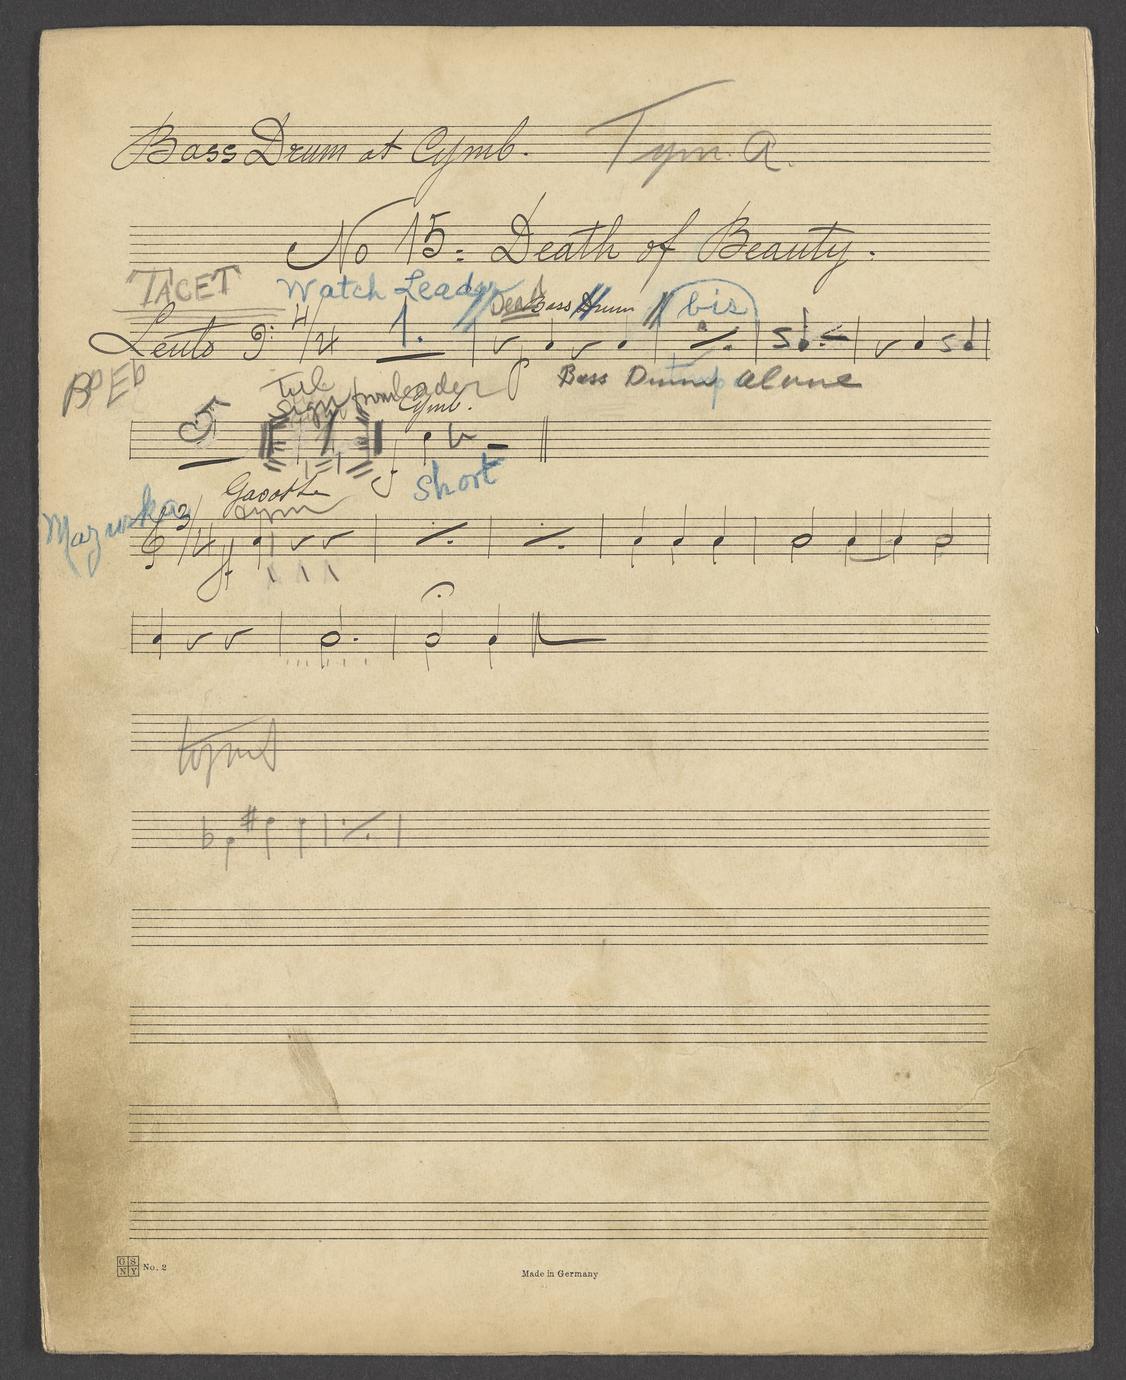 Bass Drum at Cymb. Tym. A.
No 15: Death of Beauty.
TACET Watch Leader Bass Drum bis
Lento 4/4 1.
Bass Drum alone
from leader Cymb.
5
Short
Gavotte
Mazurka 3/4
G S N Y No. 2
Made in Germany